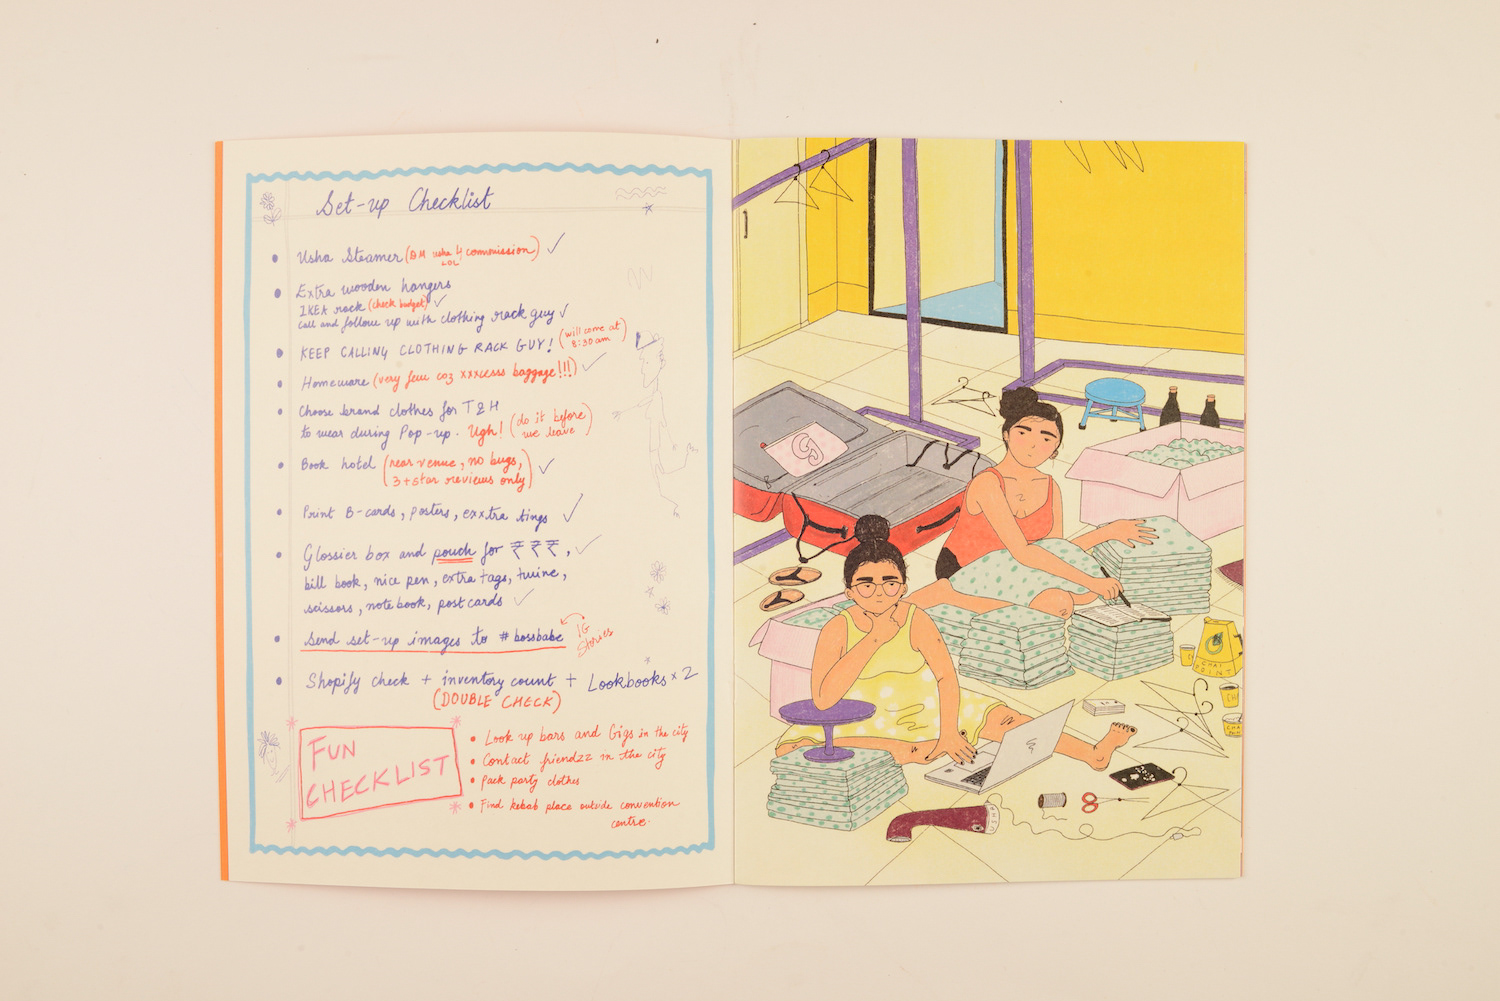 Set-up Checklist
Usha Steamer (DM usha 4 commission)
LOL
Extra wooden hangers
IKEA rack (check budget)
call and follow up with clothing rack guy
KEEP CALLING CLOTHING RACK GUY! (will come at
8:30am)
Homeware (very few coz xxxcesss baggage!!!)
Choose brand clothes for T&H
to wear during Pop-up. Ugh! (do it before
we leave)
Book hotel (near venue, no bugs,
3+star reviews only)
Print B-cards, posters, exxtra tings
Glossier box and pouch for ₹ ₹ ₹,
bill book, nice pen, extra tags, twine,
scissors, notebook, postcards
Send set-up images to #bossbabe
IG
Stories
Shopify check + inventory count + Lookbooks x 2
(DOUBLE CHECK)
FUN
CHECKLIST
Look up bars and Gigs in the city
Contact friendzz in the city
Pack party clothes
Find kebab place outside convention
centre.
CHAI
POINT
USHA